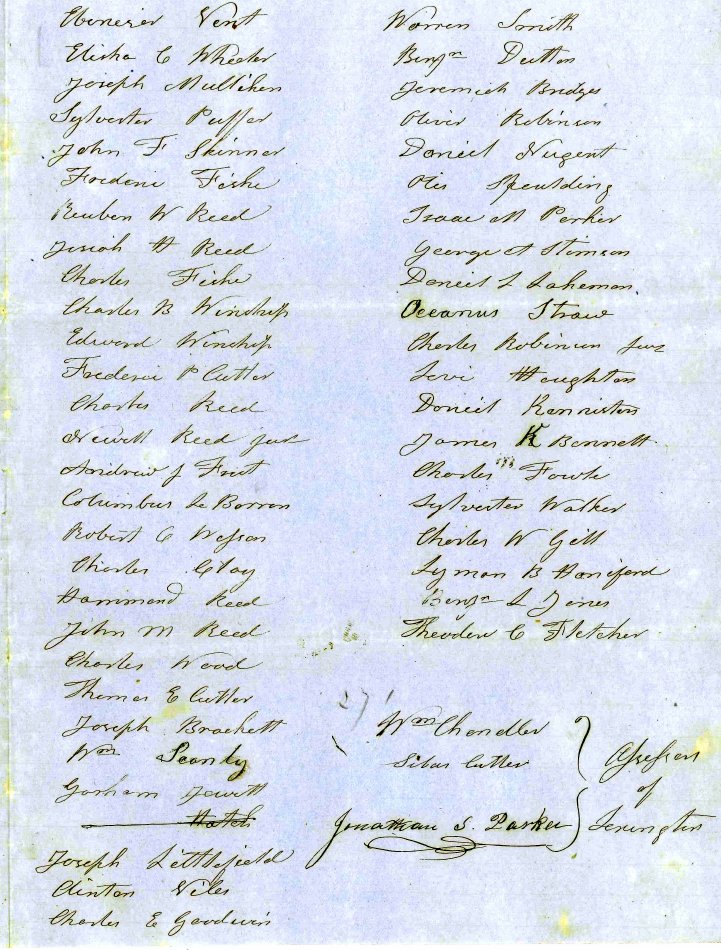 Ebenezer Vent
Elisha C Wheeler
Joseph Mulliken
Sylvester Puffer
John F Skinner
Frederic Fiske
Reuben W Reed
Josiah H Reed
Charles Fiske
Charles B Winship
Edward Winship
Frederic P Cutler
Charles Reed
Newell Reed junr
Andrew J Frost
Columbus Le Barron
Robert C Wesson
Charles Clay
Hammond Reed
John M Reed
Charles Wood
Thomas E Cutler
Joseph Brackett
Wm Scanly
Gorham Jewett
Hatch
Joseph Littlefield
Clinton Viles
Charles E Goodwin
Warren Smith
Benjn Dutton
Jeremiah Bridges
Oliver Robinson
Daniel Nugent
Otis Spaulding
Isaac M Parker
George A Stimson
Daniel L Lakeman
Oceanus Straw
Charles Robinson junr
Levi Houghton
Daniel Kenniston
James K Bennett
Charles Fowle
Sylvester Walker
Charles W Gill
Lyman B Haniford
Benjn L Jones
Theodore C Fletcher
271
Wm Chandler
Silas Cutler
Jonathan S. Parker
Assessors
of
Lexington